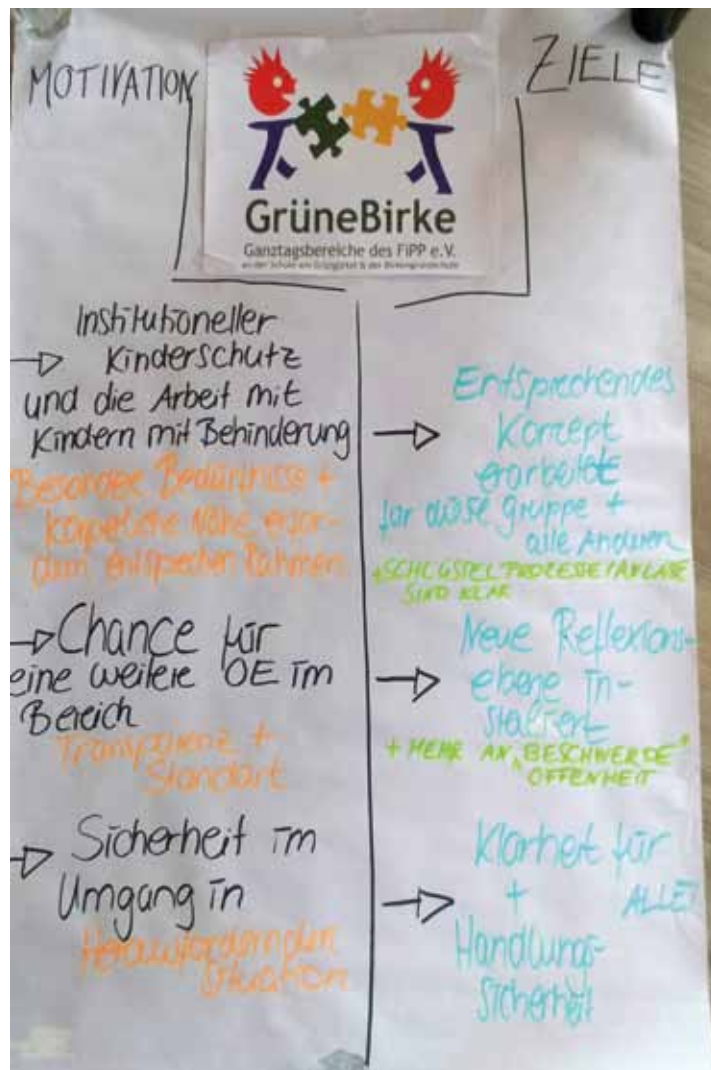 MOTIVATION
ZIELE
GrüneBirke
Ganztagsbereiche des FiPP e.V.
Institutioneller
Kinderschutz
und die Arbeit mit
Kindern mit Behinderung
Besondere Bedürfnisse +
körperliche Nähe erfor-
dern entsprechen Rahmen
Chance für
eine weitere OE im
Bereich
Transparenz +
Standort
Sicherheit im
Umgang in
Herausfordernden
Situation
Entsprechendes
Konzept
erarbeitet
für diese Gruppe +
alle Anderen
+SCHLÜSSELPROZESSE/ANLÄSSE
SIND KLAR
Neue Reflexions-
ebene in-
stalliert
+ MEHR AN "BESCHWERDE"
OFFENHEIT
Klarheit für
+ ALLE!
Handlungs-
sicherheit